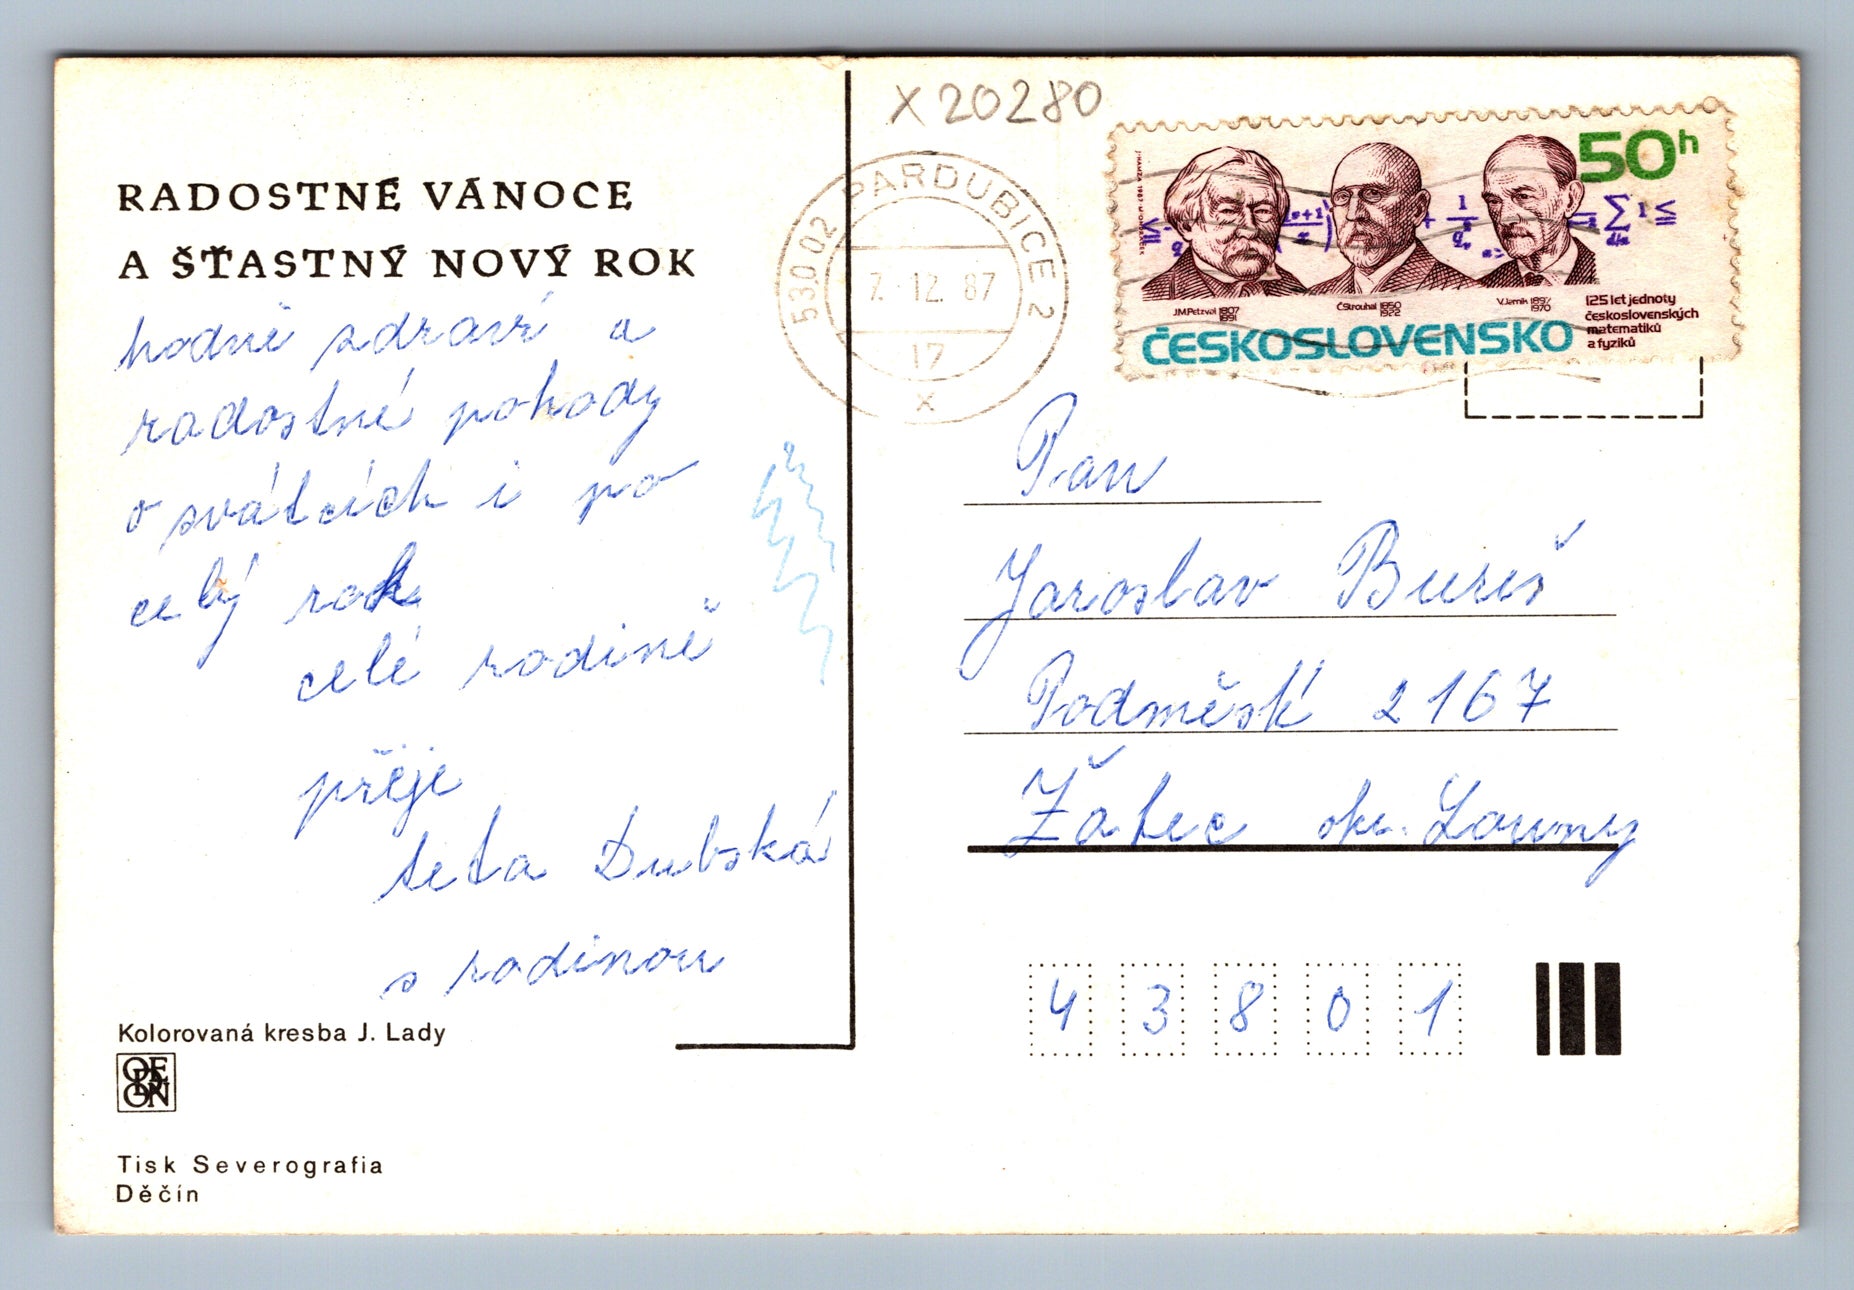 RADOSTNÉ VÁNOCE
A ŠŤASTNÝ NOVÝ ROK
hodně zdraví a
radostné pohody
o svátcích i po
celý rok
celé rodině
přeje
teta Dubská
s rodinou
Kolorovaná kresba J. Lady
ODEON
Tisk Severografia
Děčín
X 20280
530 02 PARDUBICE 2
7.-12. 87
17
x
50h
J.M.Petzval 1807 1891
Č.Strouhal 1850 1922
V.Jarník 1897 1970
125 let jednoty
československých
matematiků
a fyziků
ČESKOSLOVENSKO
Pan
Jaroslav Bureš
Podměstí 2167
Žatec okr. Louny
4 3 8 0 1